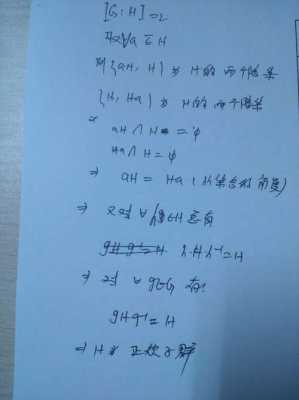 [G:H]=2
取∀a ∈ H
则{aH, H}为H的两个陪集
{H, Ha}为H的两个陪集
aH ∩ H = φ
Ha ∩ H = φ
⇒ aH = Ha (从集合的角度)
⇒ 又对∀h∈H 总有
hHh⁻¹=H
⇒ 对 ∀g∈G 有:
gHg⁻¹ = H
⇒ H是正规子群